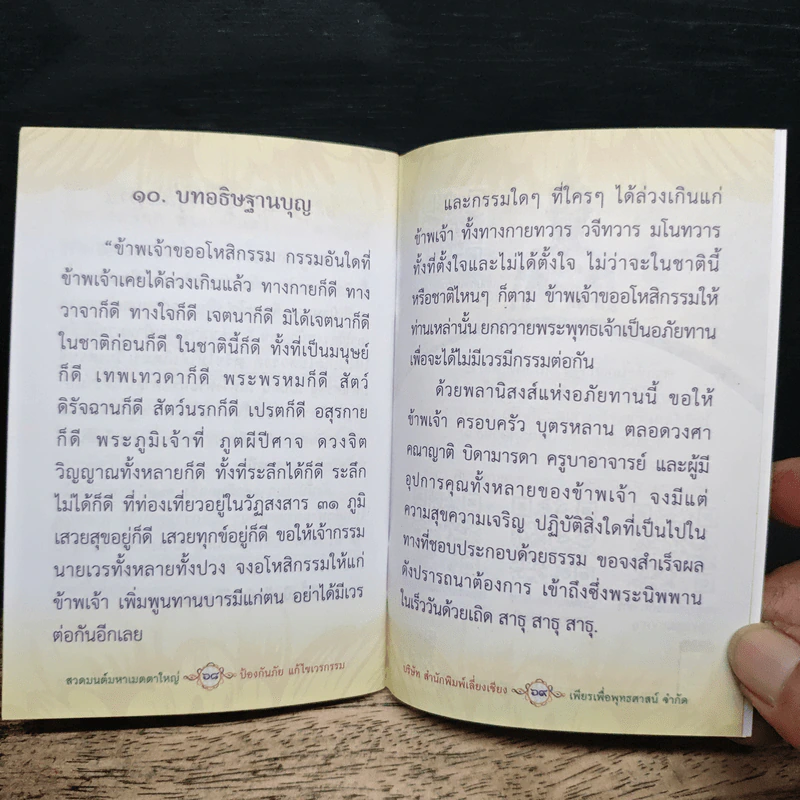 ๑๐. บทอธิษฐานบุญ
"ข้าพเจ้าขออโหสิกรรม กรรมอันใดที่
ข้าพเจ้าเคยได้ล่วงเกินแล้ว ทางกายก็ดี ทาง
วาจาก็ดี ทางใจก็ดี เจตนาก็ดี มิได้เจตนาก็ดี
ในชาติก่อนก็ดี ในชาตินี้ก็ดี ทั้งที่เป็นมนุษย์
ก็ดี เทพเทวดาก็ดี พระพรหมก็ดี สัตว์
ดิรัจฉานก็ดี สัตว์นรกก็ดี เปรตก็ดี อสุรกาย
ก็ดี พระภูมิเจ้าที่ ภูตผีปีศาจ ดวงจิต
วิญญาณทั้งหลายก็ดี ทั้งที่ระลึกได้ก็ดี ระลึก
ไม่ได้ก็ดี ที่ท่องเที่ยวอยู่ในวัฏสงสาร ๓๑ ภูมิ
เสวยสุขอยู่ก็ดี เสวยทุกข์อยู่ก็ดี ขอให้เจ้ากรรม
นายเวรทั้งหลายทั้งปวง จงอโหสิกรรมให้แก่
ข้าพเจ้า เพิ่มพูนทานบารมีแก่ตน อย่าได้มีเวร
ต่อกันอีกเลย
สวดมนต์มหาเมตตาใหญ่ ๖๘ ป้องกันภัย แก้ไขเวรกรรม
และกรรมใดๆ ที่ใครๆ ได้ล่วงเกินแก่
ข้าพเจ้า ทั้งทางกายทวาร วจีทวาร มโนทวาร
ทั้งที่ตั้งใจและไม่ได้ตั้งใจ ไม่ว่าจะในชาตินี้
หรือชาติไหนๆ ก็ตาม ข้าพเจ้าขออโหสิกรรมให้
ท่านเหล่านั้น ยกถวายพระพุทธเจ้าเป็นอภัยทาน
เพื่อจะได้ไม่มีเวรมีกรรมต่อกัน
ด้วยพลานิสงส์แห่งอภัยทานนี้ ขอให้
ข้าพเจ้า ครอบครัว บุตรหลาน ตลอดวงศา
คณาญาติ บิดามารดา ครูบาอาจารย์ และผู้มี
อุปการคุณทั้งหลายของข้าพเจ้า จงมีแต่
ความสุขความเจริญ ปฏิบัติสิ่งใดที่เป็นไปใน
ทางที่ชอบประกอบด้วยธรรม ขอจงสำเร็จผล
ดังปรารถนาต้องการ เข้าถึงซึ่งพระนิพพาน
ในเร็ววันด้วยเถิด สาธุ สาธุ สาธุ.
บริษัท สำนักพิมพ์เลี่ยงเชียง ๖๙ เพียรเพื่อพุทธศาสน์ จำกัด